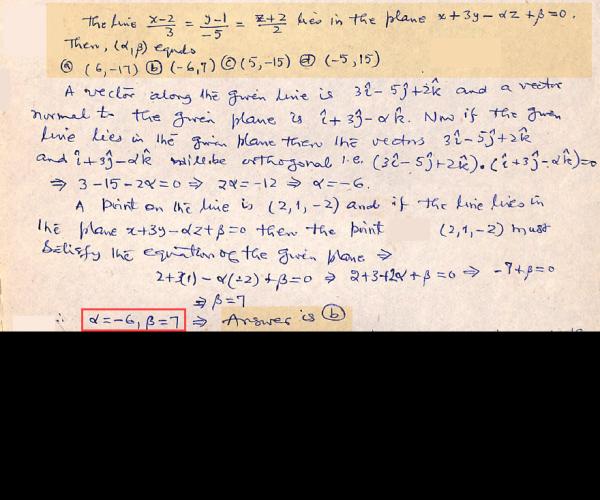 The line x-2/3 = y-1/-5 = z+2/2 lies in the plane x+3y-αz+β=0.
Then, (α,β) equals
ⓐ (6,-17) ⓑ (-6,7) ⓒ (5,-15) ⓓ (-5,15)
A vector along the given line is 3î-5ĵ+2k̂ and a vector
normal to the given plane is î+3ĵ-αk̂. Now if the given
line lies in the given plane then the vectors 3î-5ĵ+2k̂
and î+3ĵ-αk̂ will be orthogonal i.e. (3î-5ĵ+2k̂)·(î+3ĵ-αk̂)=0
⇒ 3-15-2α=0 ⇒ 2α=-12 ⇒ α=-6.
A point on the line is (2,1,-2) and if the line lies in
the plane x+3y-αz+β=0 then the point (2,1,-2) must
satisfy the equation of the given plane ⇒
2+3(1)-α(-2)+β=0 ⇒ 2+3+2α+β=0 ⇒ -7+β=0
⇒ β=7
∴ α=-6, β=7 ⇒ Answer is ⓑ